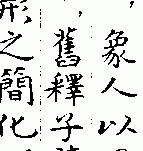 象人以
，舊釋子
形之簡化，